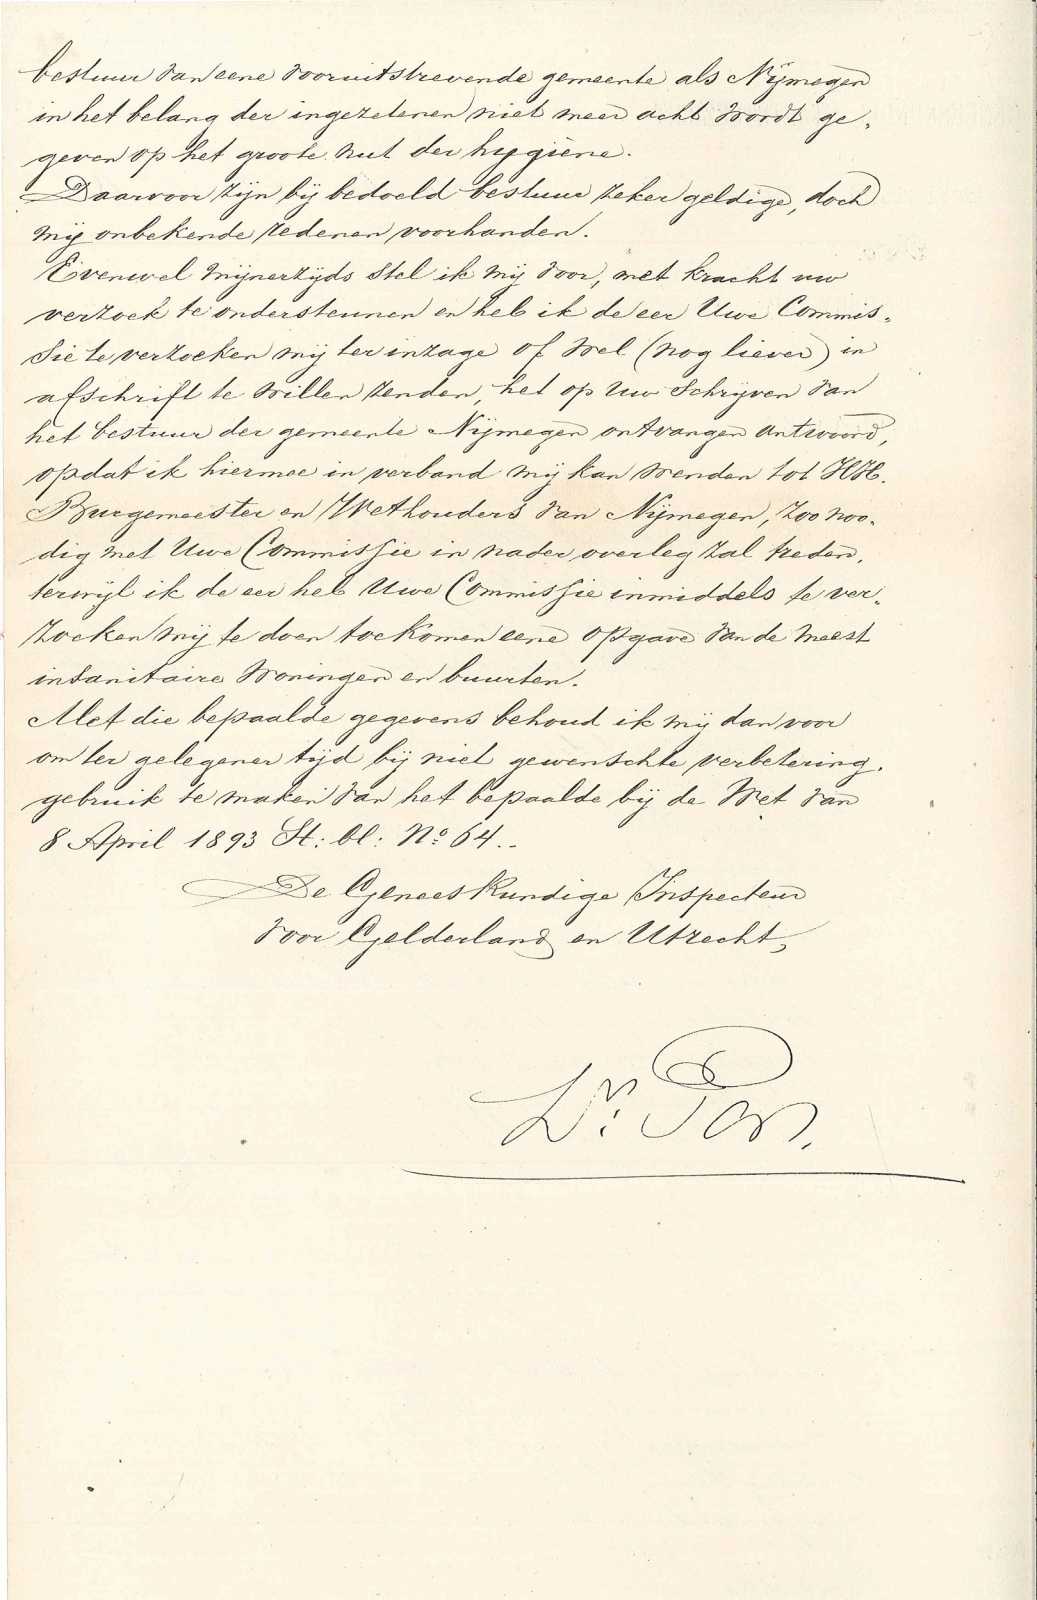 bestuur van eene vooruitstrevende gemeente als Nijmegen
in het belang der ingezetenen niet meer acht wordt ge-
geven op het groote nut der hygiène.
Daarvoor zijn bij bedoeld bestuur zeker geldige, doch
mij onbekende redenen voorhanden.
Evenwel mijnerzijds stel ik mij voor, met kracht uw
verzoek te ondersteunen en heb ik de eer Uwe Commis-
sie te verzoeken mij ter inzage of wel (nog liever) in
afschrift te willen zenden, het op Uw schrijven van
het bestuur der gemeente Nijmegen ontvangen antwoord,
opdat ik hiermee in verband mij kan wenden tot HH.
Burgemeester en Wethouders van Nijmegen, zoo noo-
dig met Uwe Commissie in nader overleg zal treden,
terwijl ik de eer heb Uwe Commissie inmiddels te ver-
zoeken mij te doen toekomen eene opgave van de meest
insanitaire woningen en buurten.
Met die bepaalde gegevens behoud ik mij dan voor
om ter gelegener tijd bij niet gewenschte verbetering,
gebruik te maken van het bepaalde bij de Wet van
8 April 1893 St: bl: No 64..
De Geneeskundige Inspecteur
voor Gelderland en Utrecht,
Dr: